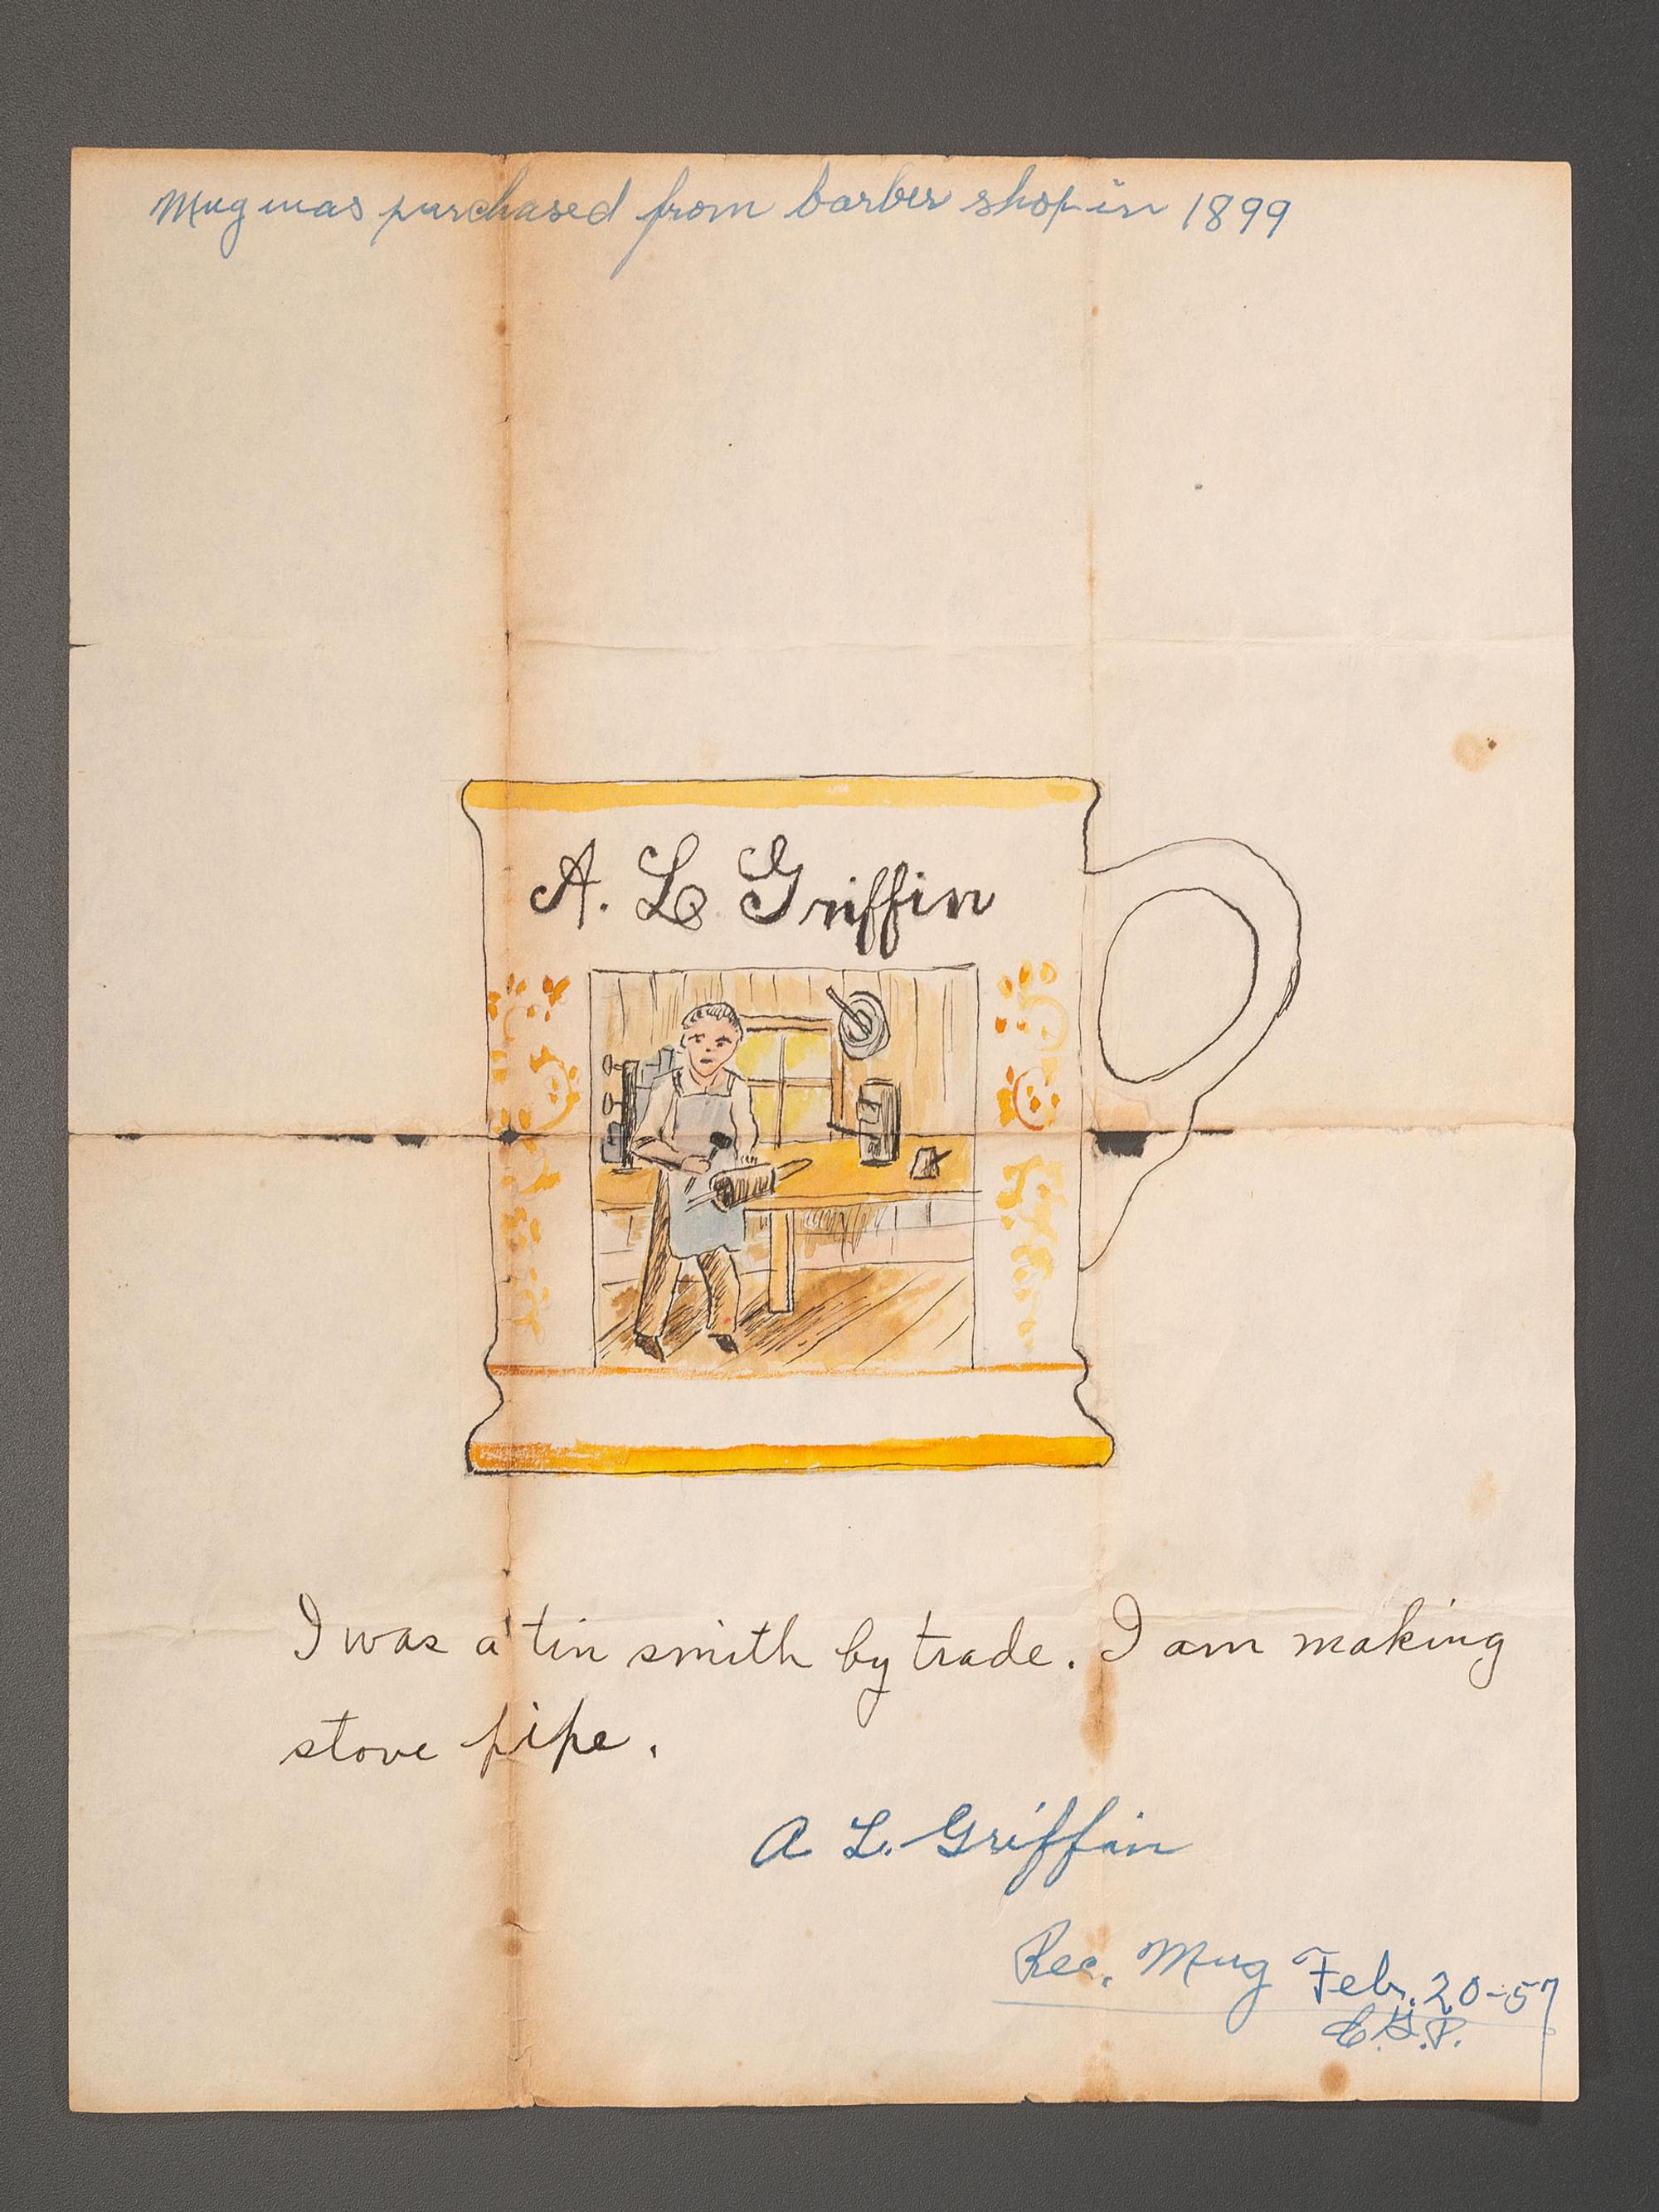 Mug was purchased from barber shop in 1899
A. L Griffin
I was a tin smith by trade. I am making
stove pipe.
A L. Griffin
Rec. Mug Feb. 20-57
E.G.P.